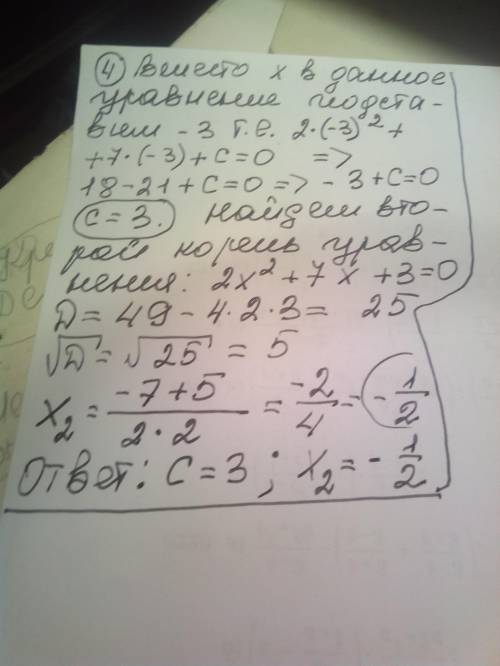 ④ Вместо x в данное
уравнение подста-
вим - 3 т.е. 2·(-3)² +
+7·(-3) + C = 0 =>
18 - 21 + C = 0 => - 3 + C = 0
C = 3. найдем вто-
рой корень урав-
нения: 2x² + 7x + 3 = 0
D = 49 - 4·2·3 = 25
√D = √25 = 5
x₂ = (-7+5)/(2·2) = -2/4 = - 1/2
Ответ: C = 3 ; x₂ = - 1/2